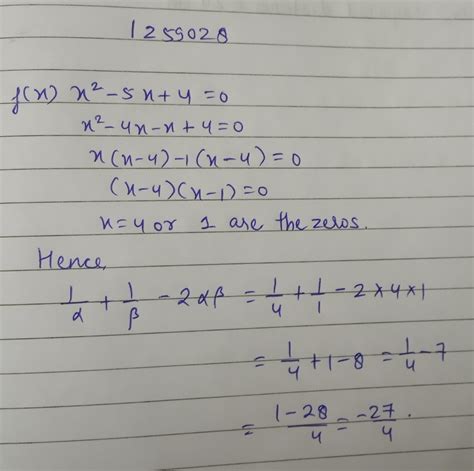 1259028
f(x) x²-5x+4=0
x²-4x-x+4=0
x(x-4)-1(x-4)=0
(x-4)(x-1)=0
x=4 or 1 are the zeros.
Hence,
1/α + 1/β - 2αβ = 1/4 + 1/1 - 2×4×1
= 1/4 + 1 - 8 = 1/4 - 7
= (1-28)/4 = -27/4.